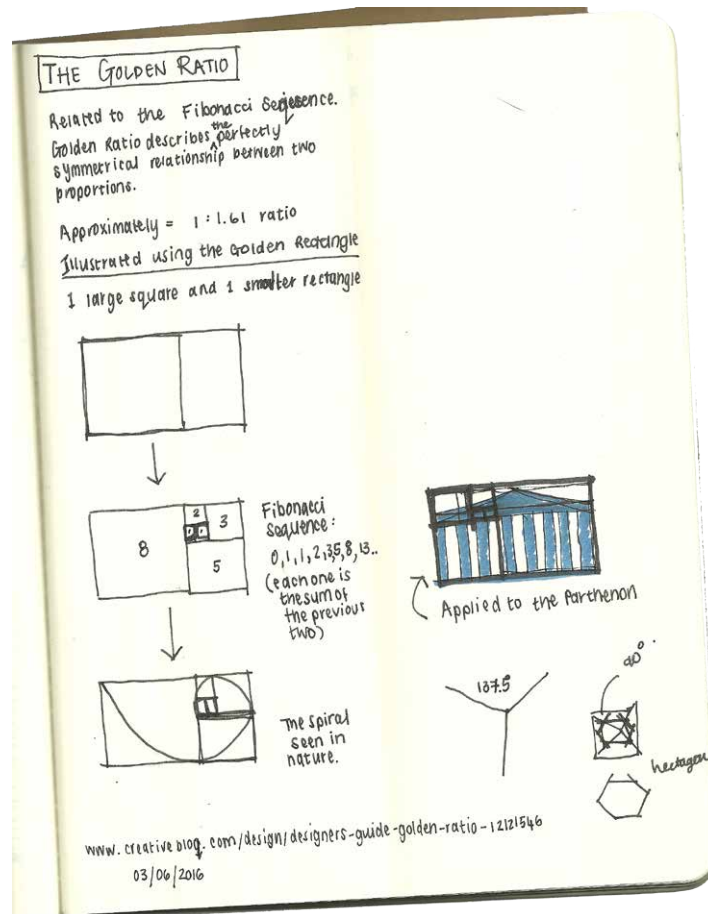 THE GOLDEN RATIO
Related to the Fibonacci Sequence.
Golden Ratio describes the perfectly
symmetrical relationship between two
proportions.
Approximately = 1:1.61 ratio
Illustrated using the Golden Rectangle
1 large square and 1 smaller rectangle
8
2
3
1 1
5
Fibonacci
Sequence:
0,1,1,2,3,5,8,13..
(each one is
the sum of
the previous
two)
Applied to the Parthenon
The spiral
seen in
nature.
137.5
90°
hectagon
www.creativebloq.com/design/designers-guide-golden-ratio-12121546
03/06/2016